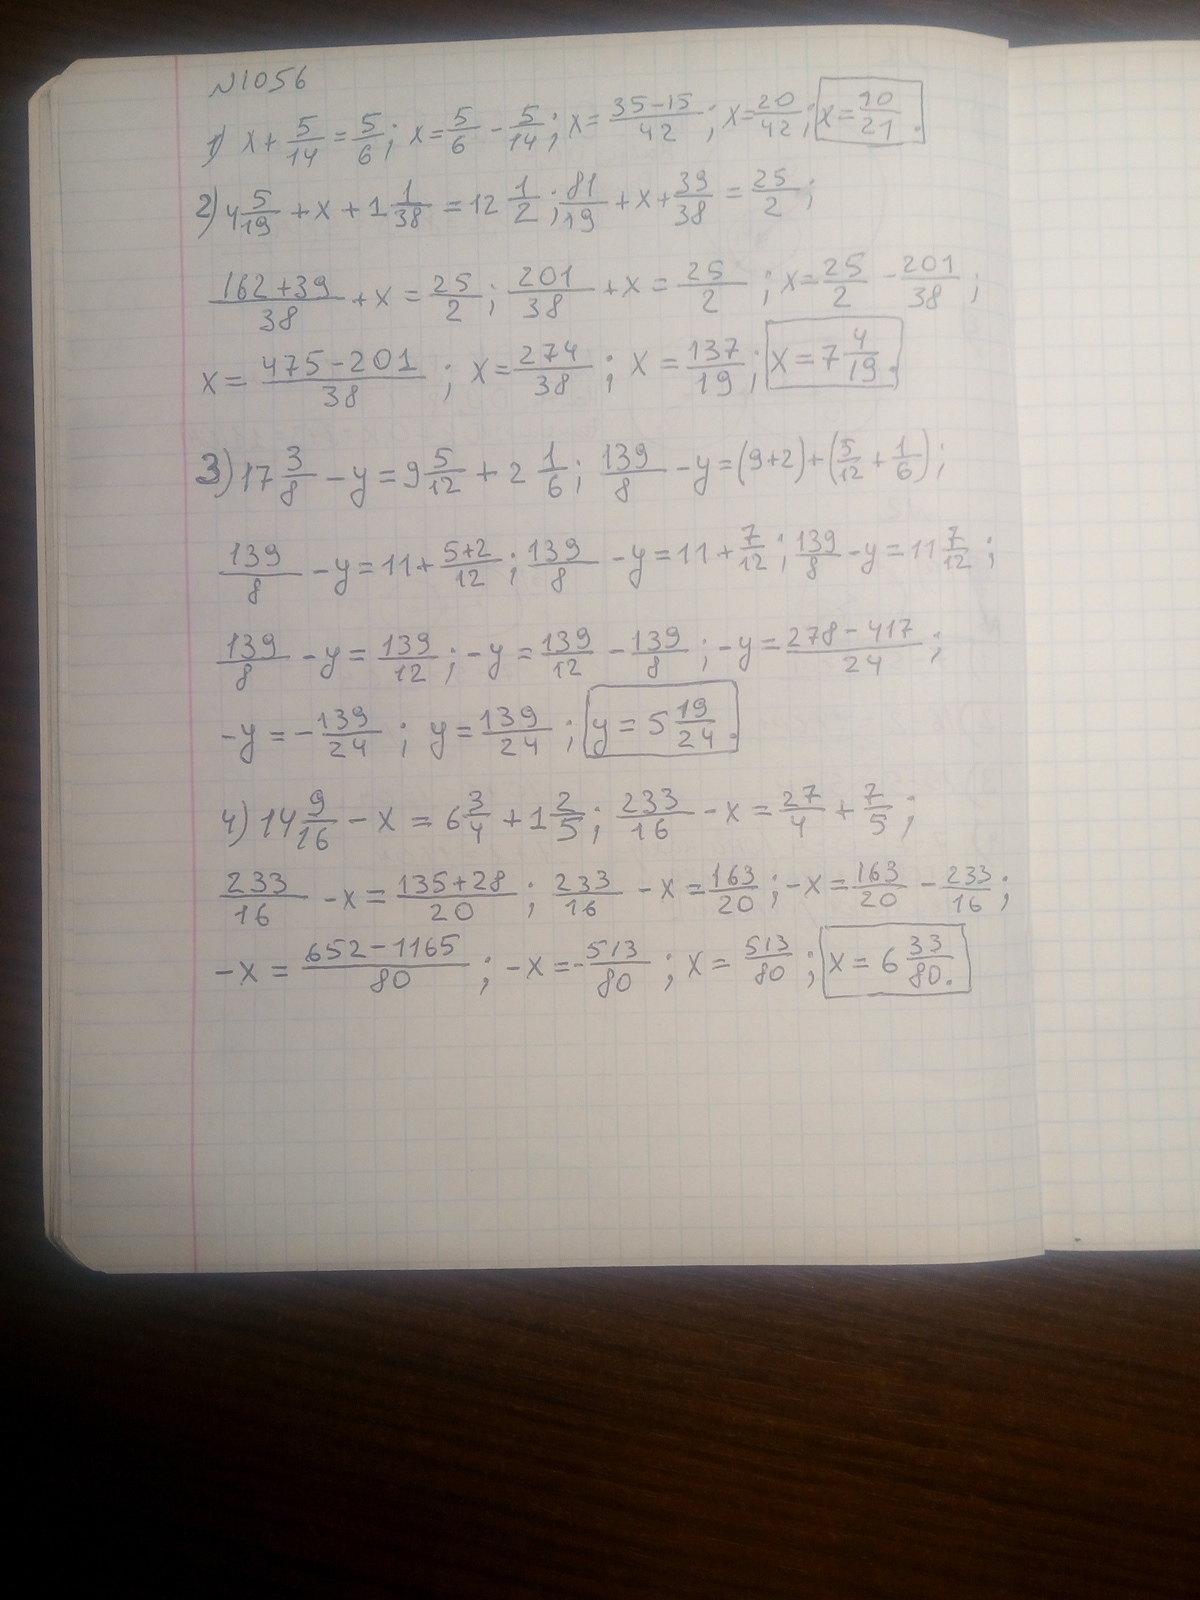 N1056
1) x + 5/14 = 5/6; x = 5/6 - 5/14; x = (35-15)/42; x = 20/42; x = 10/21.
2) 4 5/19 + x + 1 1/38 = 12 1/2; 81/19 + x + 39/38 = 25/2;
(162+39)/38 + x = 25/2; 201/38 + x = 25/2; x = 25/2 - 201/38;
x = (475-201)/38; x = 274/38; x = 137/19; x = 7 4/19.
3) 17 3/8 - y = 9 5/12 + 2 1/6; 139/8 - y = (9+2) + (5/12 + 1/6);
139/8 - y = 11 + (5+2)/12; 139/8 - y = 11 + 7/12; 139/8 - y = 11 7/12;
139/8 - y = 139/12; -y = 139/12 - 139/8; -y = (278-417)/24;
-y = -139/24; y = 139/24; y = 5 19/24.
4) 14 9/16 - x = 6 3/4 + 1 2/5; 233/16 - x = 27/4 + 7/5;
233/16 - x = (135+28)/20; 233/16 - x = 163/20; -x = 163/20 - 233/16;
-x = (652-1165)/80; -x = -513/80; x = 513/80; x = 6 33/80.